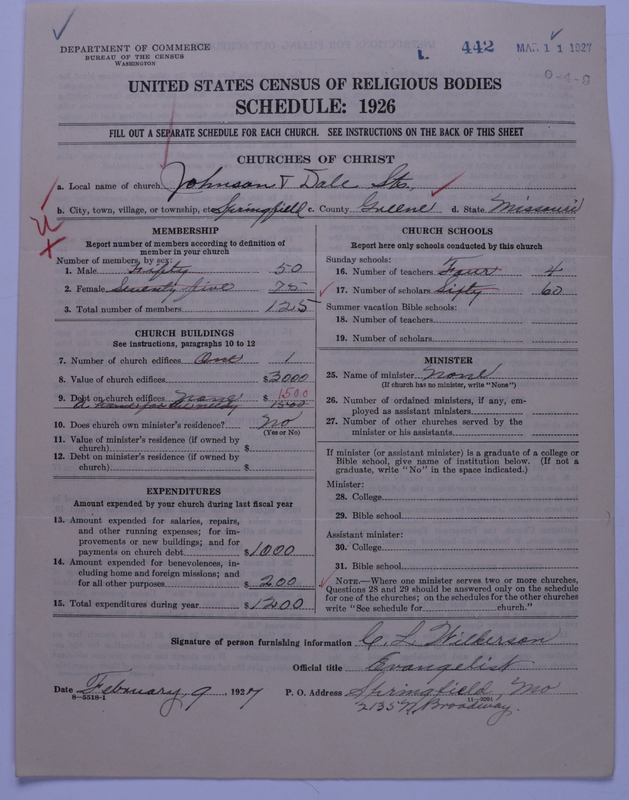 442 MAR 11 1927
DEPARTMENT OF COMMERCE
BUREAU OF THE CENSUS
WASHINGTON
0-4-8
UNITED STATES CENSUS OF RELIGIOUS BODIES
SCHEDULE: 1926
FILL OUT A SEPARATE SCHEDULE FOR EACH CHURCH. SEE INSTRUCTIONS ON THE BACK OF THIS SHEET
CHURCHES OF CHRIST
a. Local name of church Johnson & Dale Sts.
b. City, town, village, or township, etc. Springfield c. County Greene d. State Missouri
MEMBERSHIP
Report number of members according to definition of
member in your church
Number of members, by sex:
1. Male Fifty 50
2. Female Seventy five 75
3. Total number of members 125
CHURCH BUILDINGS
See instructions, paragraphs 10 to 12
7. Number of church edifices One 1
8. Value of church edifices $3000
9. Debt on church edifices None $1500
1500
10. Does church own minister's residence? No
(Yes or No)
11. Value of minister's residence (if owned by
church) $
12. Debt on minister's residence (if owned by
church) $
EXPENDITURES
Amount expended by your church during last fiscal year
13. Amount expended for salaries, repairs,
and other running expenses; for im-
provements or new buildings; and for
payments on church debt $1000
14. Amount expended for benevolences, in-
cluding home and foreign missions; and
for all other purposes $200
15. Total expenditures during year $1200
CHURCH SCHOOLS
Report here only schools conducted by this church
Sunday schools:
16. Number of teachers Four 4
17. Number of scholars Sifty 60
Summer vacation Bible schools:
18. Number of teachers
19. Number of scholars
MINISTER
25. Name of minister None
(If church has no minister, write "None")
26. Number of ordained ministers, if any, em-
ployed as assistant ministers
27. Number of other churches served by the
minister or his assistants
If minister (or assistant minister) is a graduate of a college or
Bible school, give name of institution below. (If not a
graduate, write "No" in the space indicated.)
Minister:
28. College
29. Bible school
Assistant minister:
30. College
31. Bible school
NOTE.—Where one minister serves two or more churches,
Questions 28 and 29 should be answered only on the schedule
for one of the churches; on the schedules for the other churches
write "See schedule for church."
Signature of person furnishing information C. L. Wilkerson
Official title Evangelist
Date February 9, 1927 P. O. Address Springfield, Mo
8—5518-1 11—9091
2135 N. Broadway.